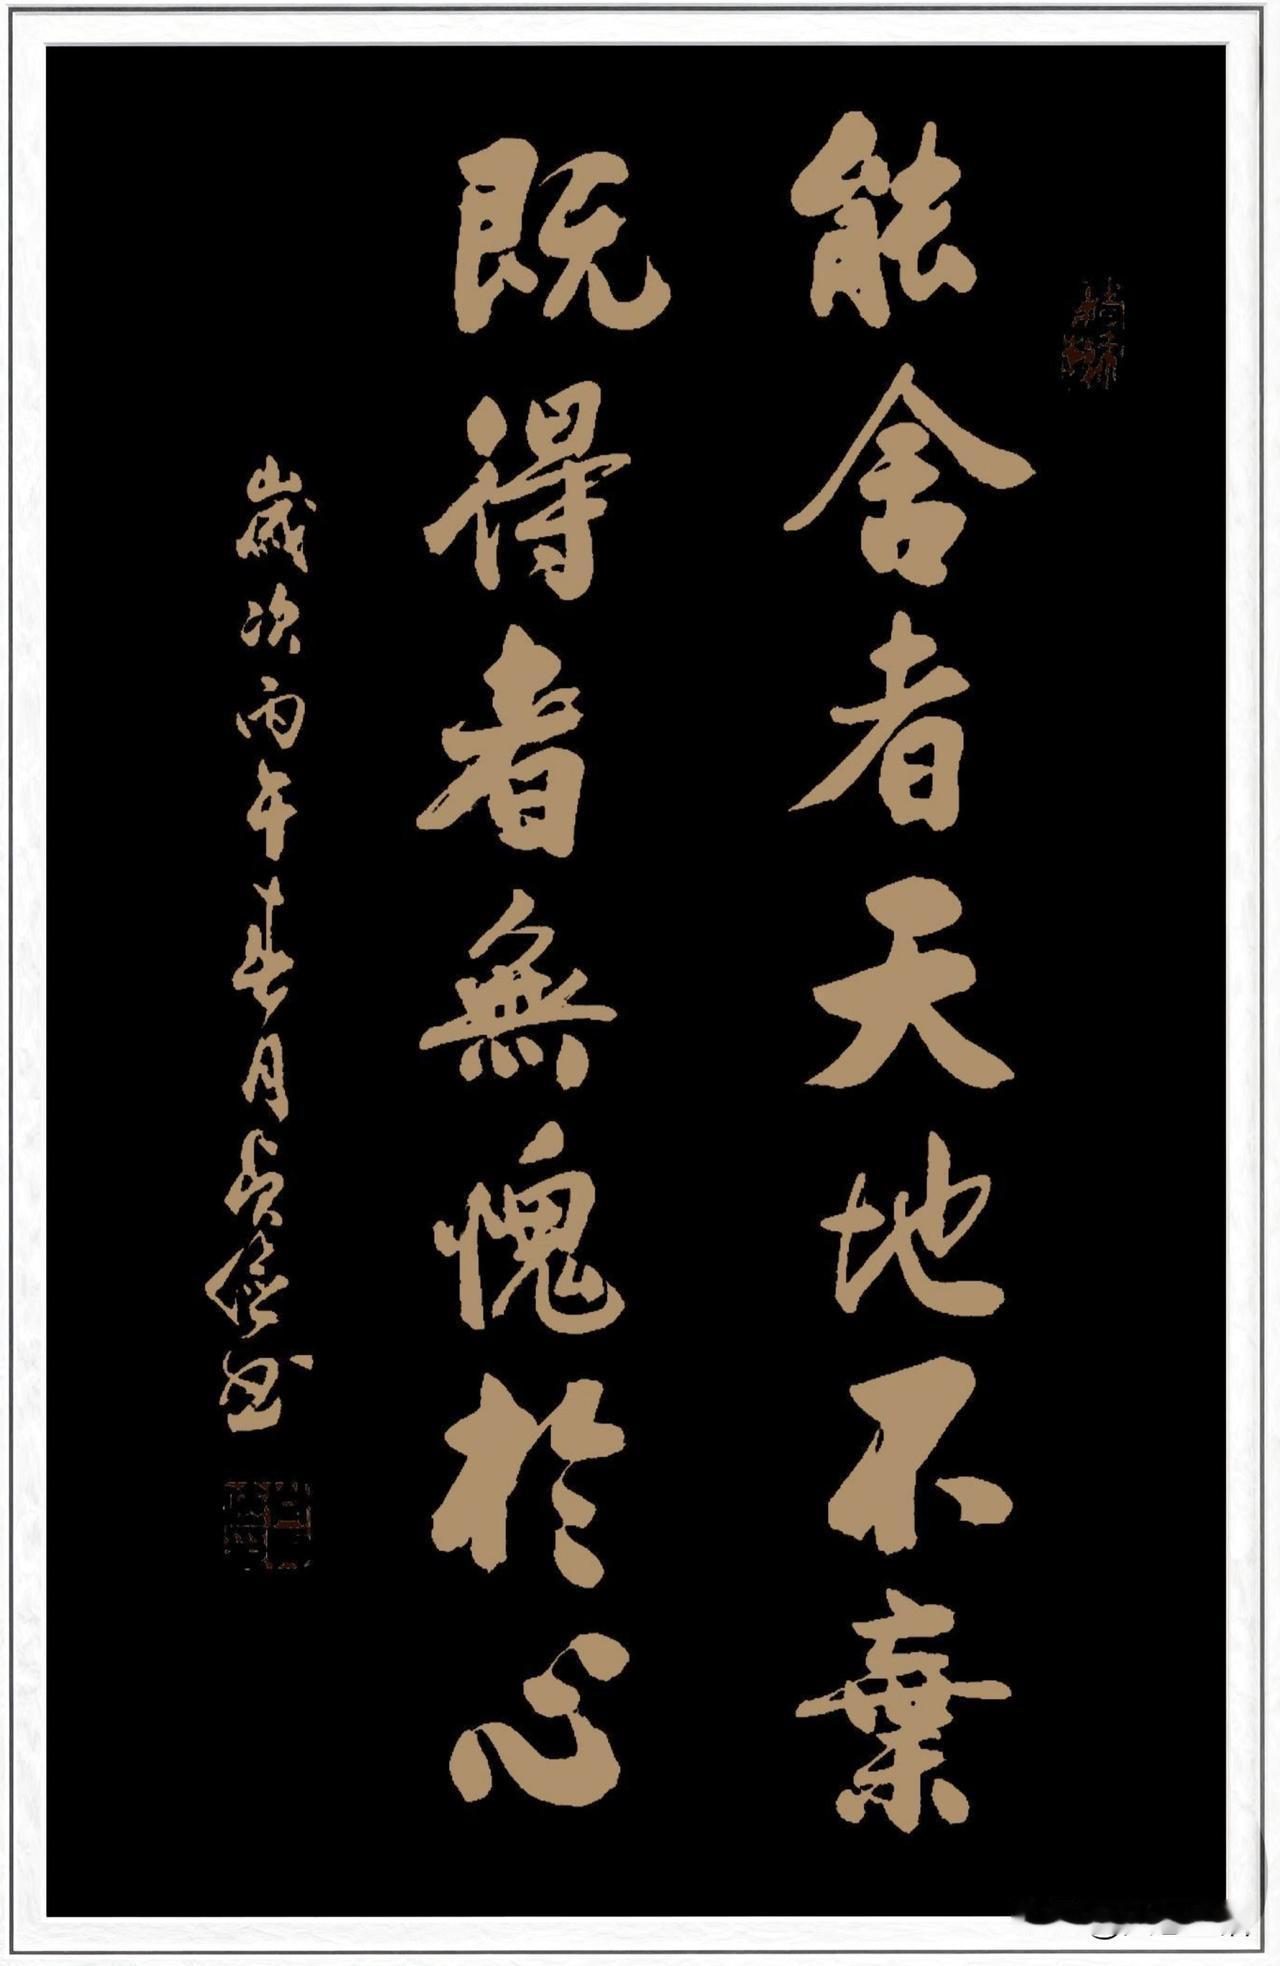 能舍者天地不棄
既得者無愧於心
歲次丙午春月